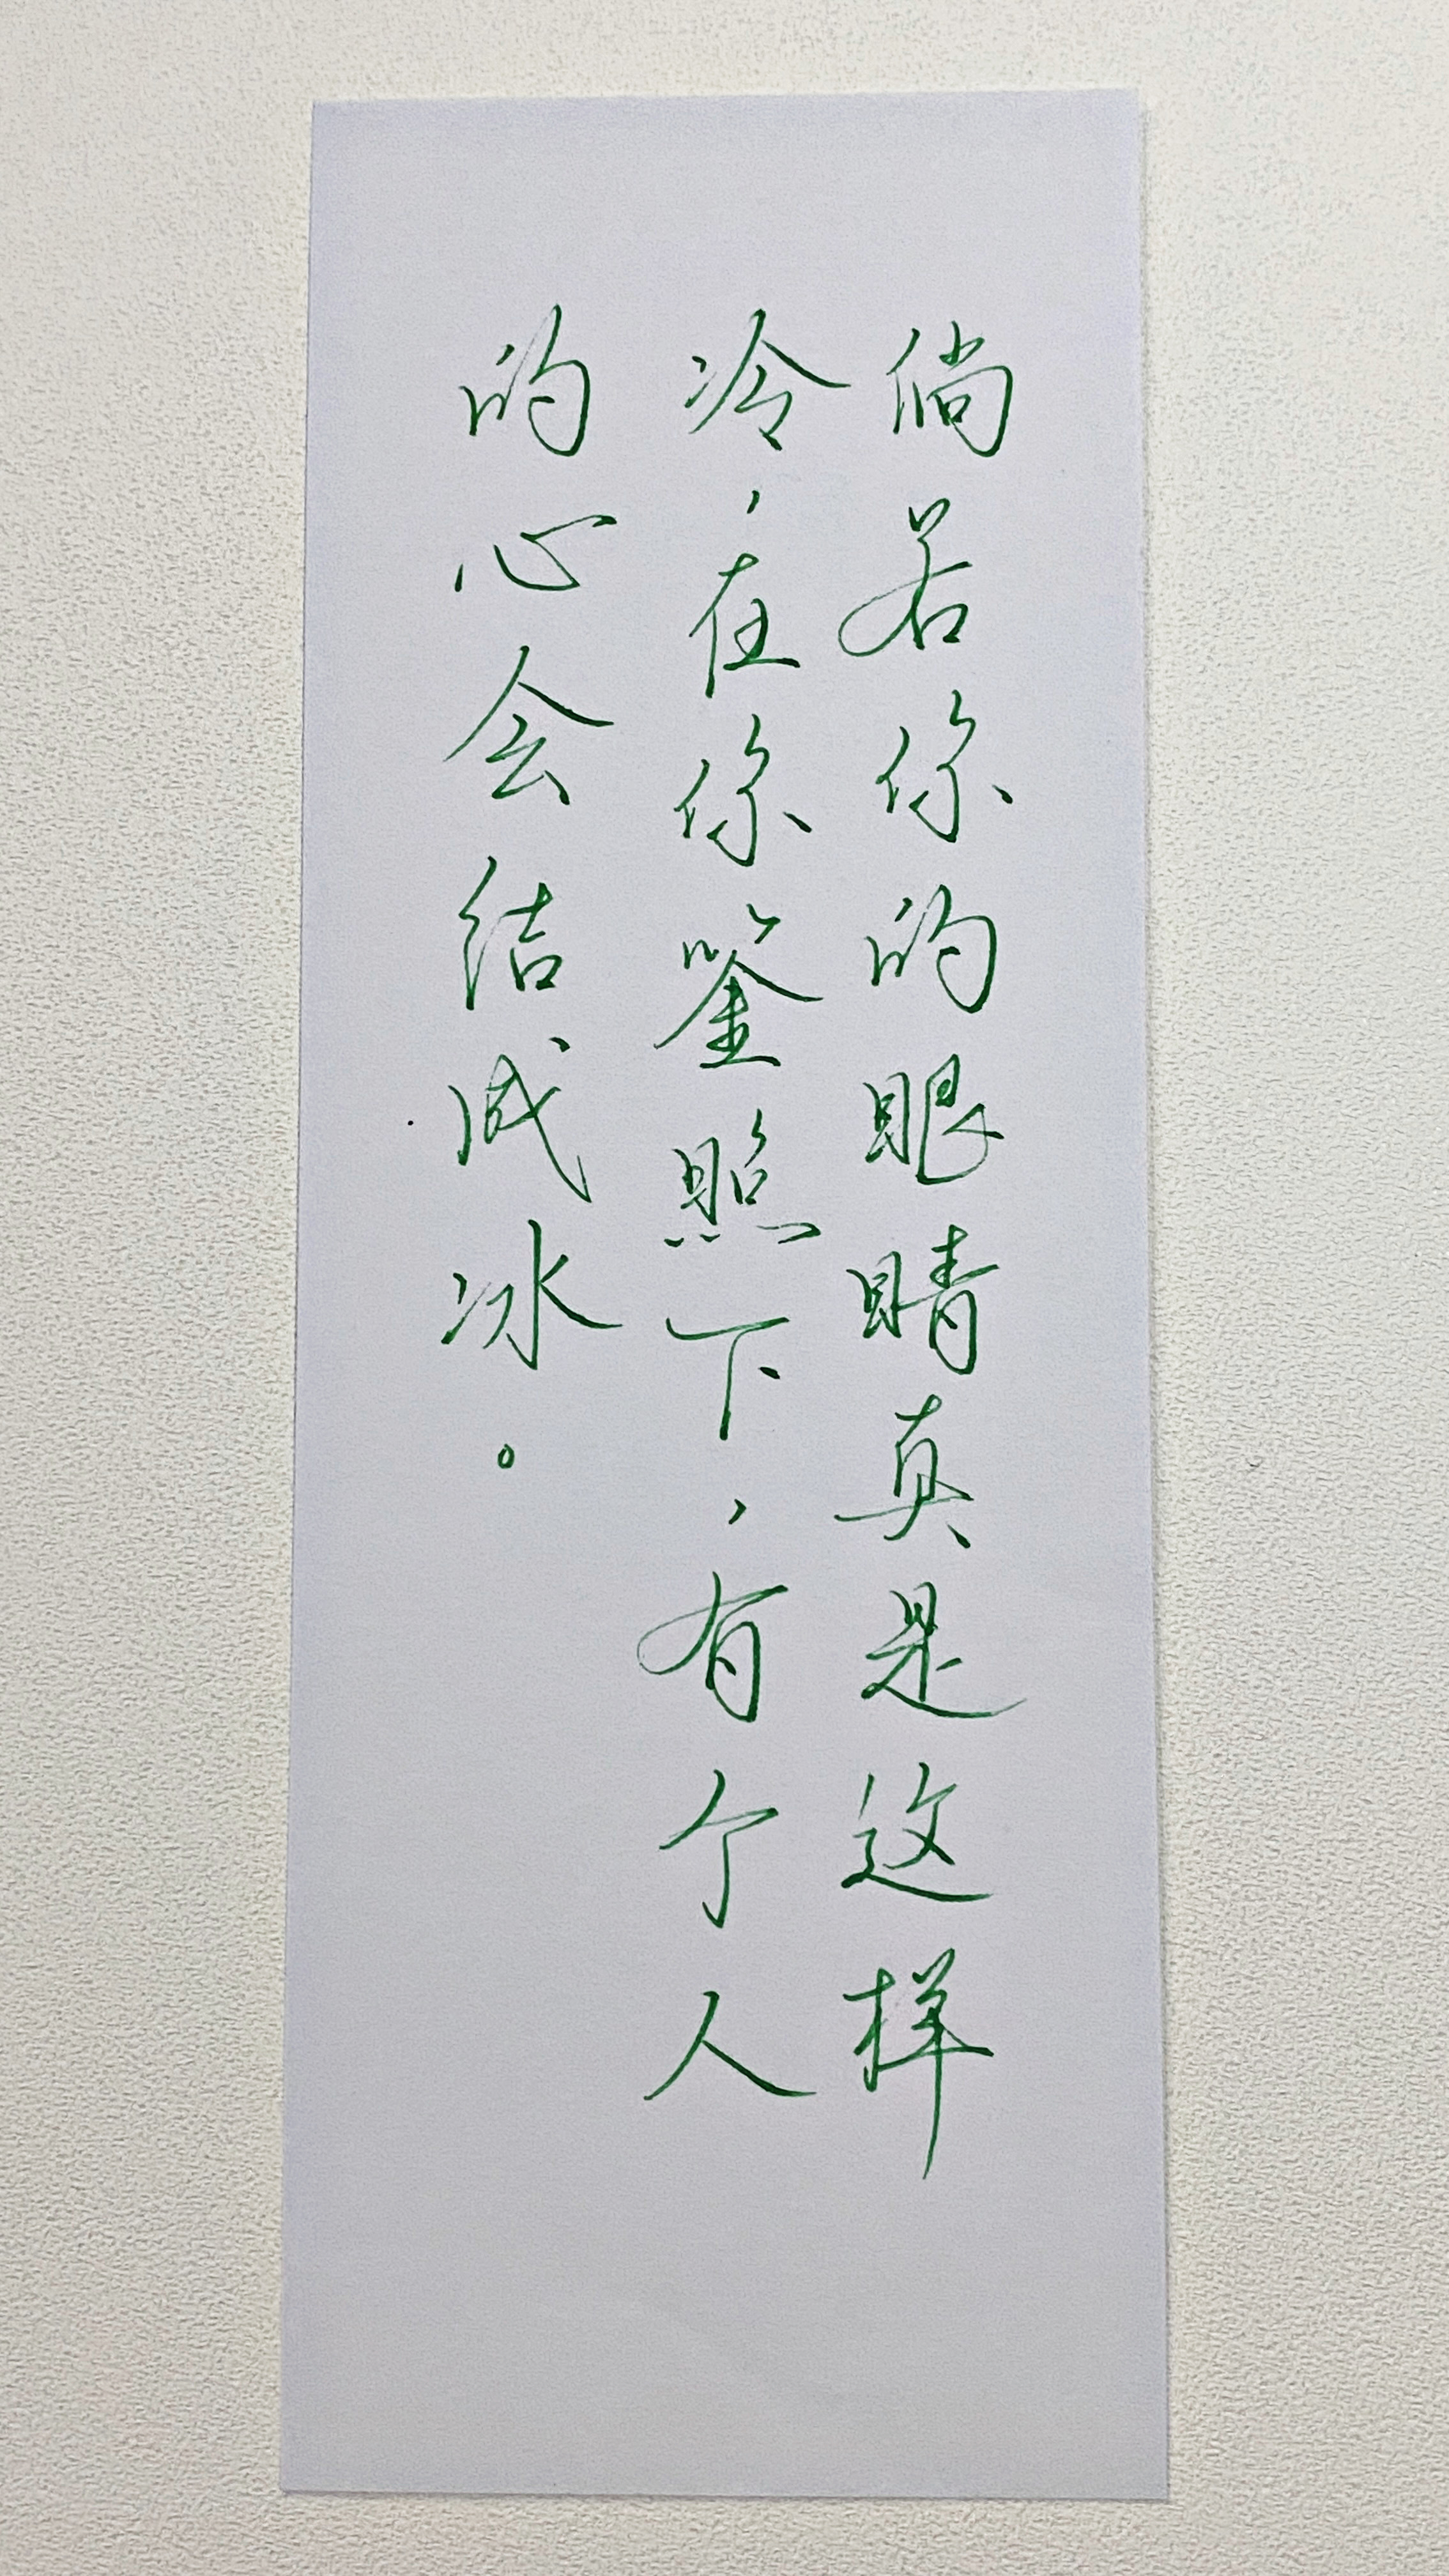 倘若你的眼睛真是这样
冷，在你鉴照下，有个人
的心会结成冰。